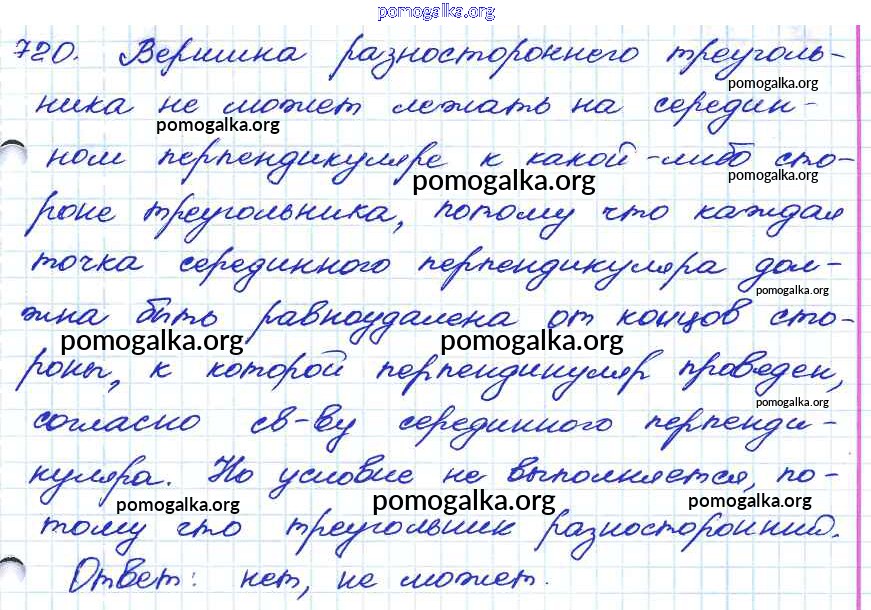 pomogalka.org
720. Вершина разностороннего треуголь-
pomogalka.org
ника не может лежать на середин-
pomogalka.org
ном перпендикуляре к какой-либо сто-
pomogalka.org
pomogalka.org
роне треугольника, потому что каждая
точка серединного перпендикуляра дол-
pomogalka.org
жна быть равноудалена от концов сто-
pomogalka.org
pomogalka.org
роны, к которой перпендикуляр проведен,
pomogalka.org
согласно св-ву серединного перпенди-
куляра. Но условие не выполняется, по-
pomogalka.org
pomogalka.org
pomogalka.org
тому что треугольник разносторонний.
Ответ: нет, не может.